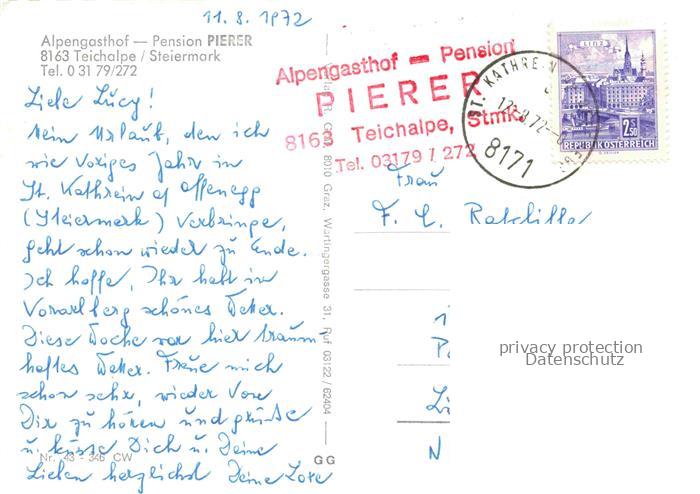 11.8.1972
Alpengasthof — Pension PIERER
8163 Teichalpe / Steiermark
Tel. 0 31 79/272
Liebe Lucy!
Mein Urlaub, den ich
wie voriges Jahr in
St. Kathrein a/ Offenegg
(Steiermark) verbringe,
geht schon wieder zu Ende.
Ich hoffe, Ihr habt in
Vorarlberg schönes Wetter.
Diese Woche war hier traum-
haftes Wetter. Freue mich
schon sehr, wieder von
Dir zu hören und grüße
u. küsse Dich u. Deine
Lieben herzlichst Deine Lore
Nr. 43 - 346 CW
GG
8010 Graz, Wartingergasse 31, Ruf 03122 / 62404
Alpengasthof — Pension
PIERER
8163 Teichalpe, Stmk.
Tel. 03179 / 272
ST. KATHREIN
8171
LINZ
2.50
REPUBLIK ÖSTERREICH
Frau
F. C.
Li
N
privacy protection
Datenschutz